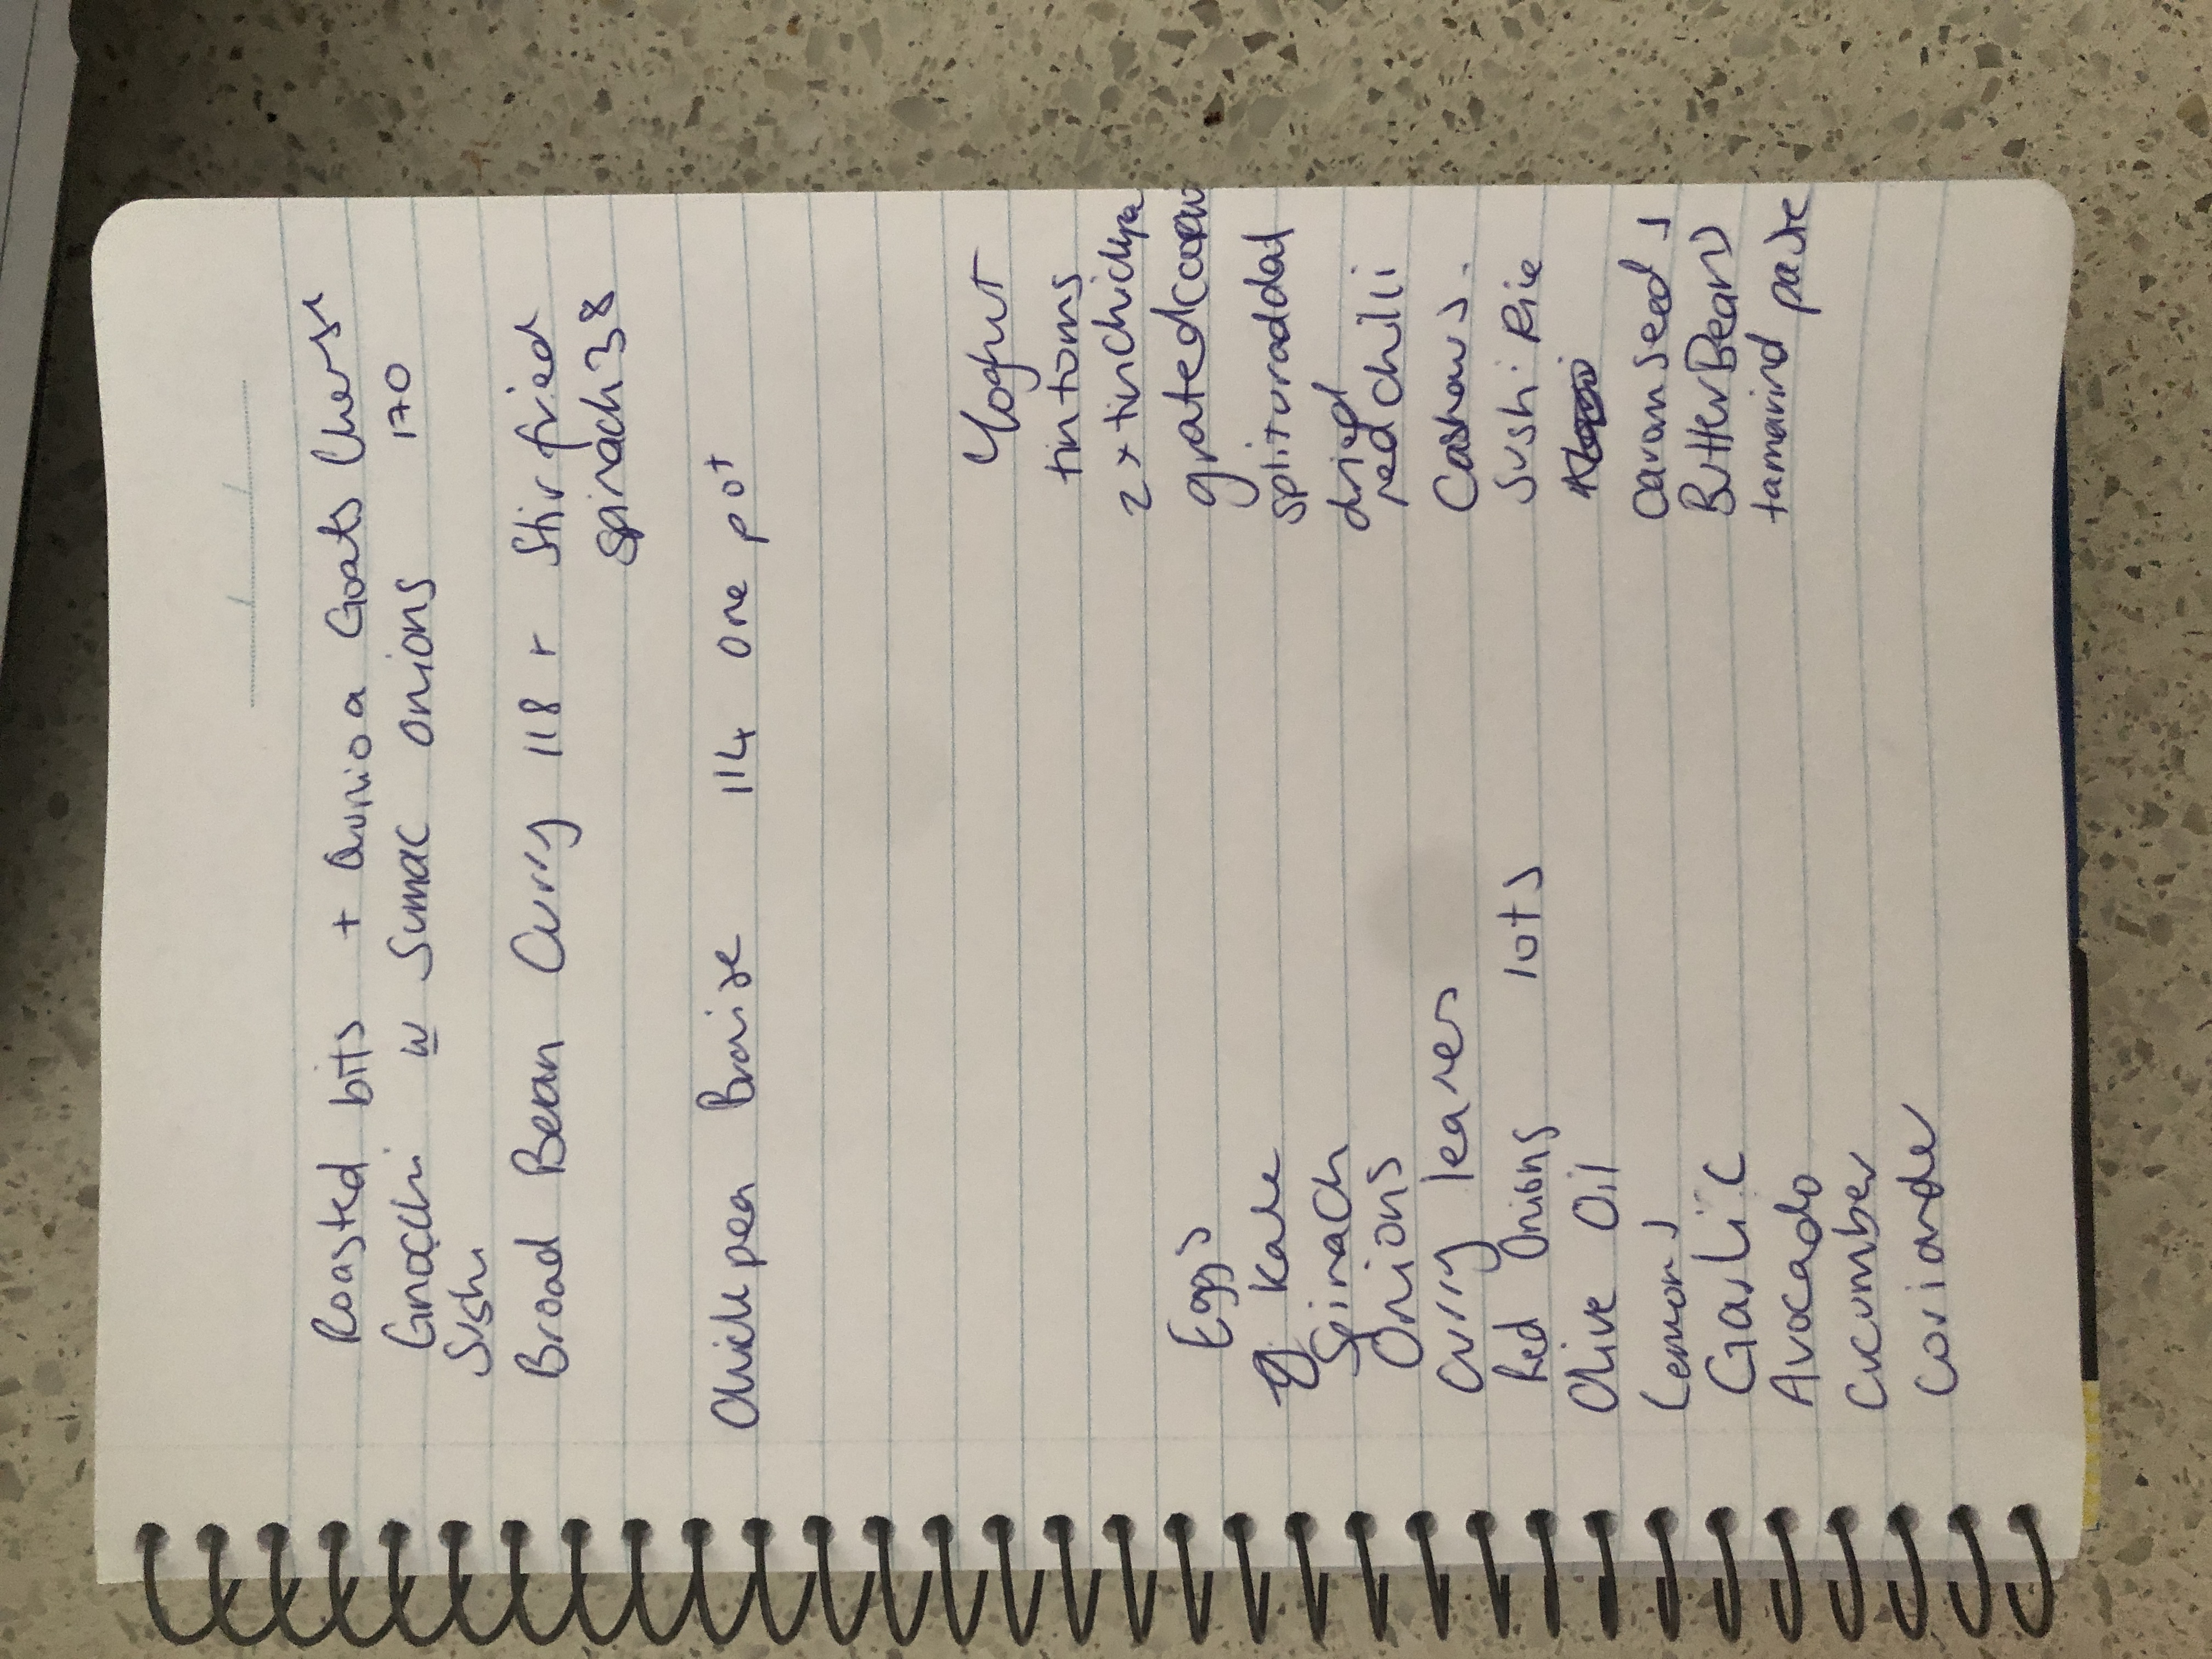 Roasted bits + Qunioa Goats Cheese
Gnocchi w Sumac onions 170
Sushi
Broad Bean Curry 118 + Stir fried
spinach 38
Chickpea Braise 114 one pot
Eggs
Kale
Spinach
Onions
Curry leaves
Red Onions lots
Olive Oil
Lemons
Garlic
Avocado
Cucumber
Coriander
Yoghurt
tin toms
2 x tin Chickpea
grated
split urad dal
dried
red chilli
Cashews.
Sushi Rice
caromseeds
Butter Beans
tamarind paste